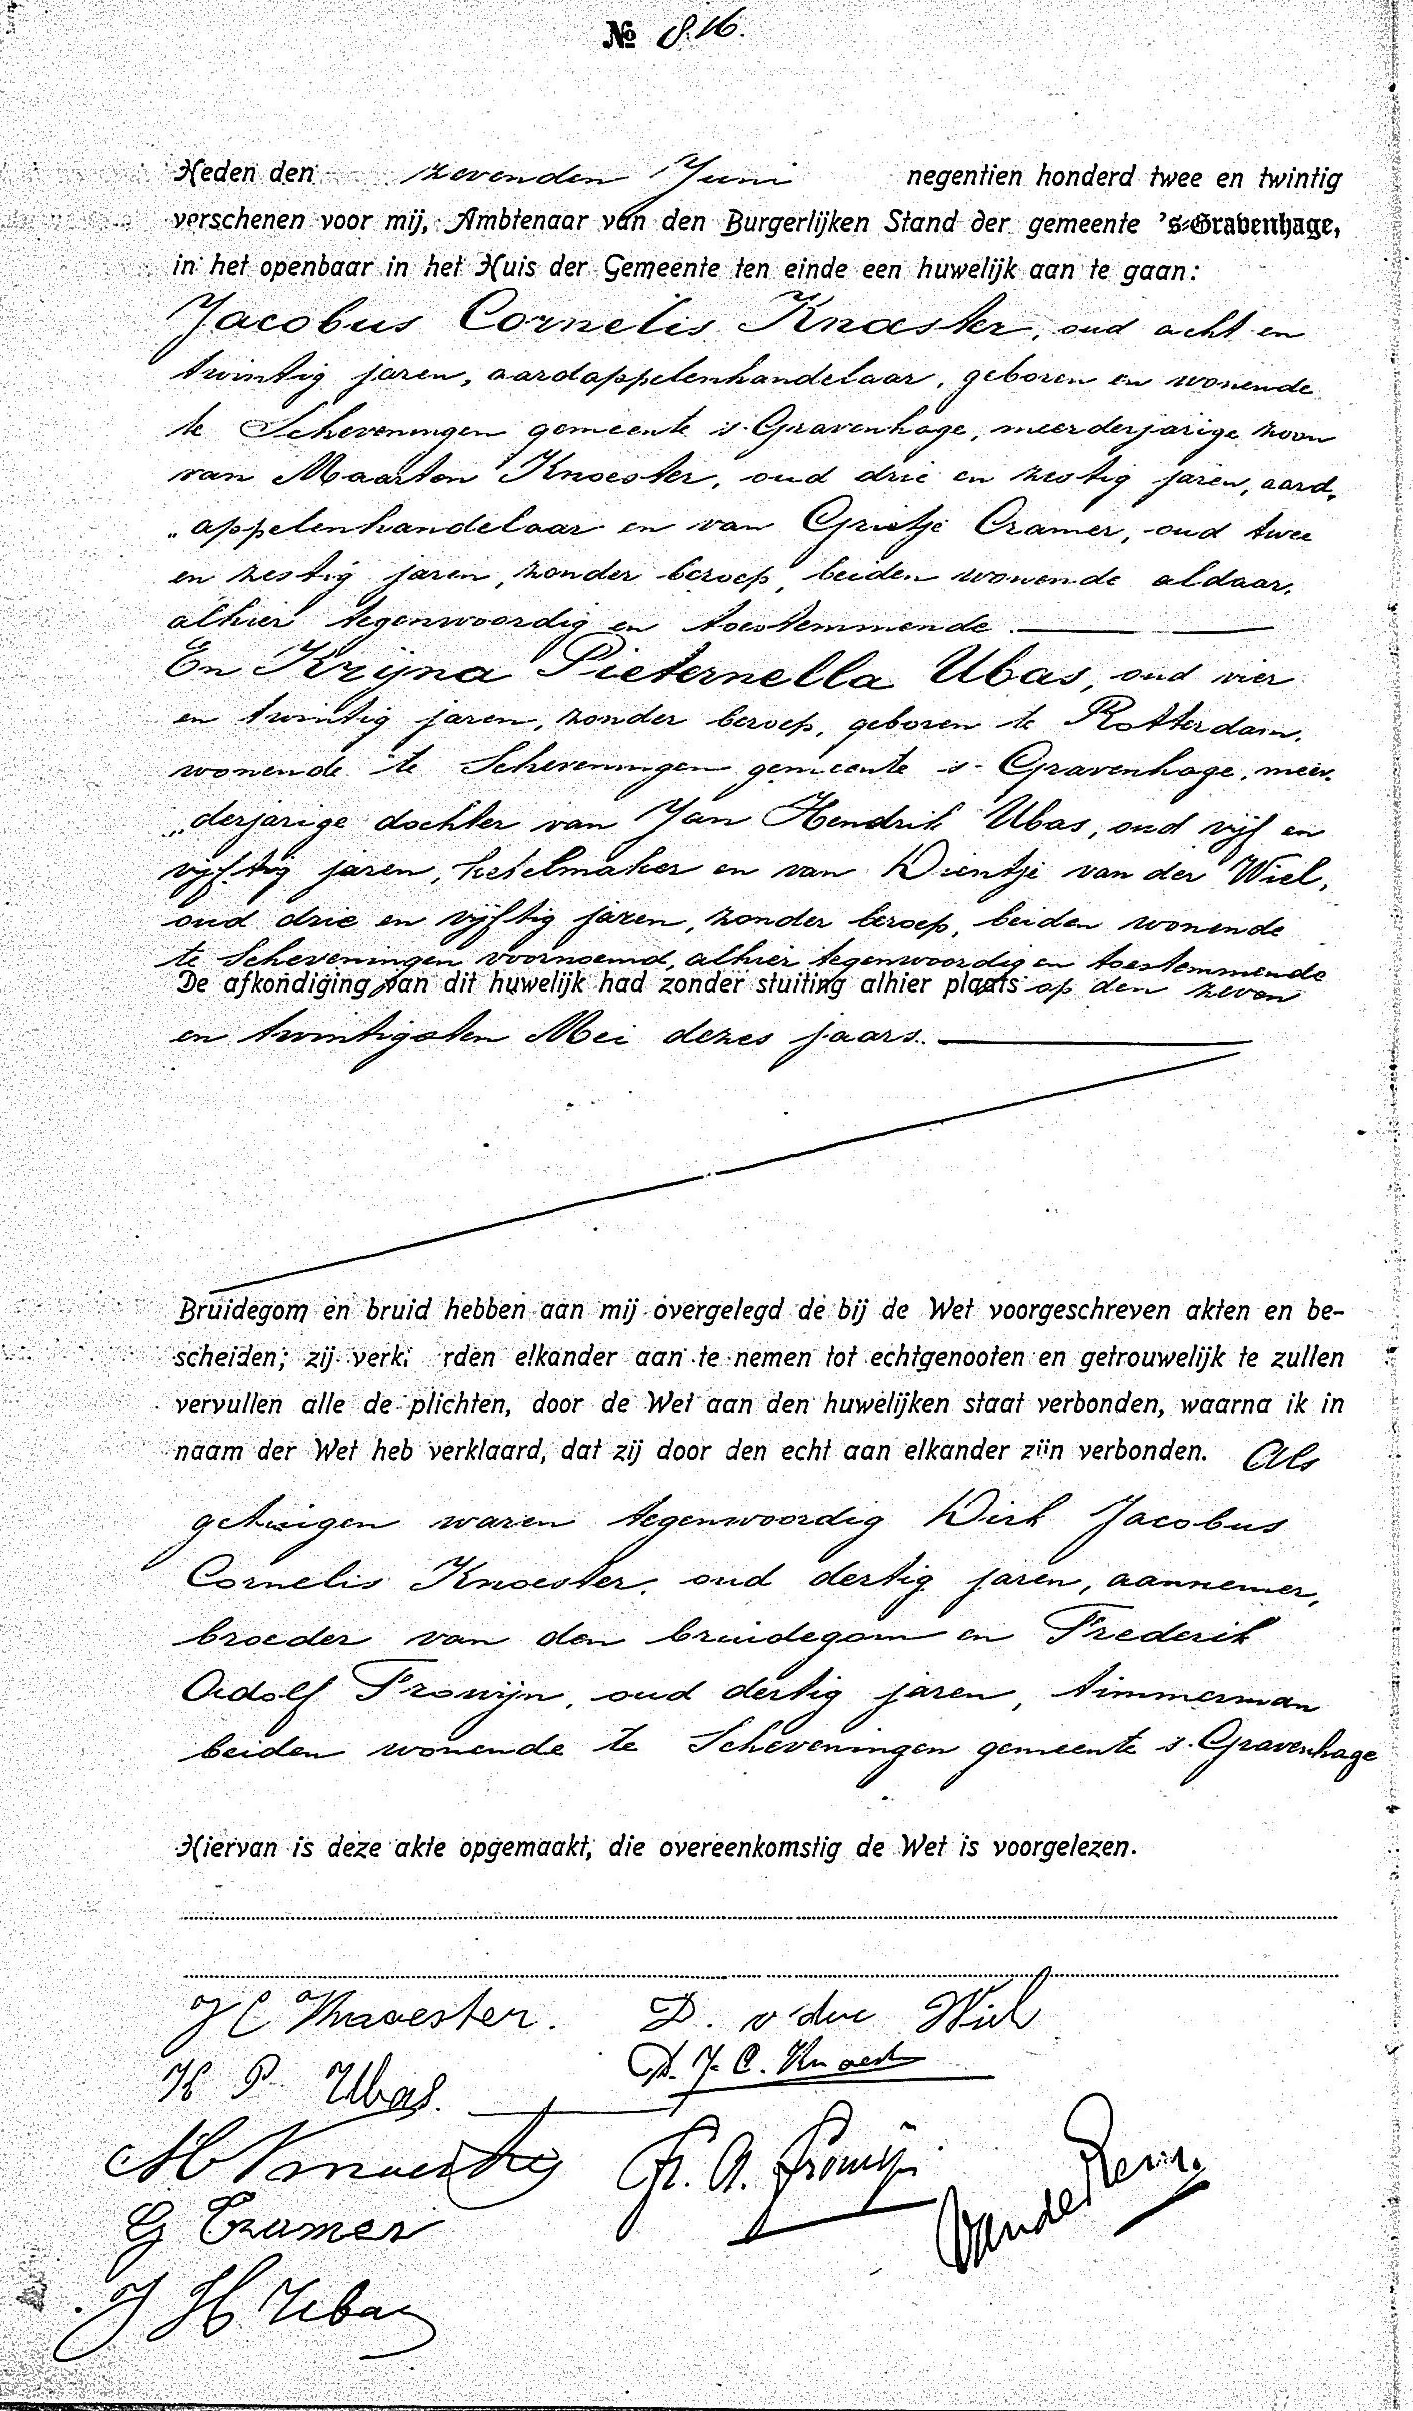 № 816.
Heden den zevenden Juni negentien honderd twee en twintig
verschenen voor mij, Ambtenaar van den Burgerlijken Stand der gemeente 's-Gravenhage,
in het openbaar in het Huis der Gemeente ten einde een huwelijk aan te gaan:
Jacobus Cornelis Knoester, oud acht en
twintig jaren, aardappelenhandelaar, geboren en wonende
te Scheveningen gemeente 's-Gravenhage, meerderjarige zoon
van Maarten Knoester, oud drie en zestig jaren, aard„
„appelenhandelaar en van Grietje Cramer, oud twee
en zestig jaren, zonder beroep, beiden wonende aldaar,
alhier tegenwoordig en toestemmende.
En Krijna Pieternella Ubas, oud vier
en twintig jaren, zonder beroep, geboren te Rotterdam,
wonende te Scheveningen gemeente 's-Gravenhage, meer„
„derjarige dochter van Jan Hendrik Ubas, oud vijf en
vijftig jaren, ketelmaker en van Dientje van der Wiel,
oud drie en vijftig jaren, zonder beroep, beiden wonende
te Scheveningen voornoemd, alhier tegenwoordig en toestemmende
De afkondiging van dit huwelijk had zonder stuiting alhier plaats op den zeven
en twintigsten Mei dezes jaars.
Bruidegom en bruid hebben aan mij overgelegd de bij de Wet voorgeschreven akten en be-
scheiden; zij verk rden elkander aan te nemen tot echtgenooten en getrouwelijk te zullen
vervullen alle de plichten, door de Wet aan den huwelijken staat verbonden, waarna ik in
naam der Wet heb verklaard, dat zij door den echt aan elkander zijn verbonden. Als
getuigen waren tegenwoordig Dirk Jacobus
Cornelis Knoester, oud dertig jaren, aannemer,
broeder van den bruidegom en Frederik
Adolf Frowijn, oud dertig jaren, timmerman
beiden wonende te Scheveningen gemeente 's-Gravenhage
Hiervan is deze akte opgemaakt, die overeenkomstig de Wet is voorgelezen.
J C Knoester. D. v der Wiel
K P Ubas. D. J. C. Knoester
M Knoester Fr. A. Frowijn
G Cramer
J H Ubas